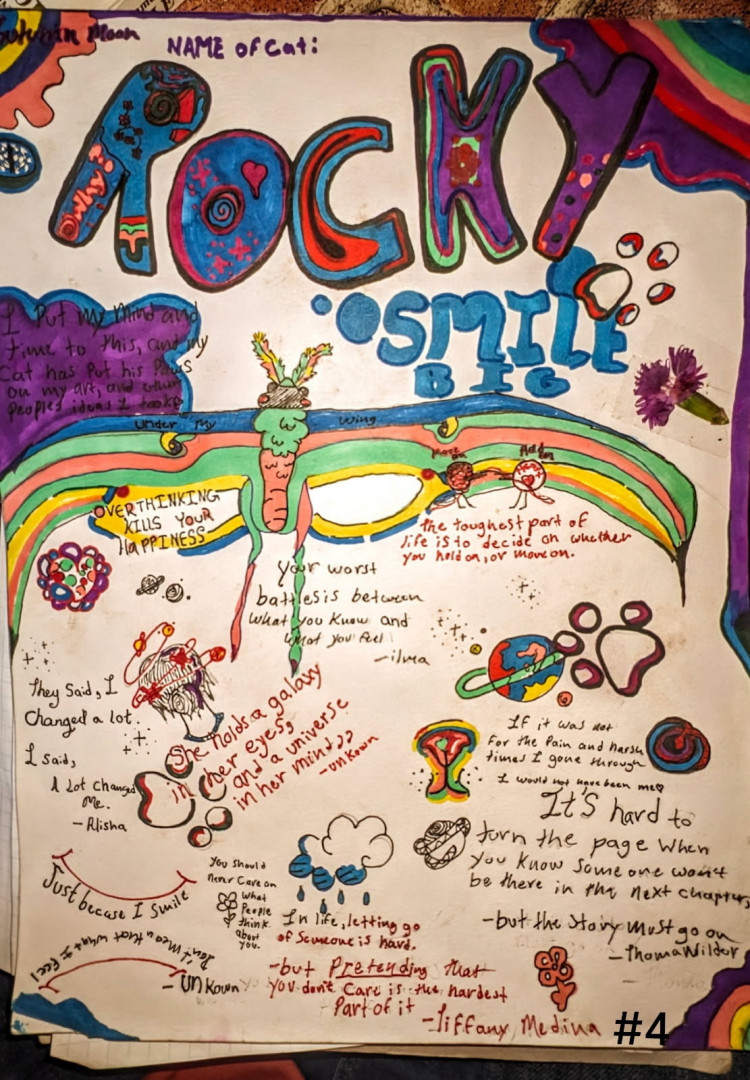 Moon
NAME of Cat:
ROCKY
Why?
SMILE
BIG
I Put my Mind and
time to this, and my
Cat has Put his Paws
on my art, and other
Peoples ideas I took
Under My Wing
Move on
Hold on
OVERTHINKING
KILLS YOUR
HAPPINESS
the toughest part of
life is to decide on whether
you hold on, or move on.
Your worst
battles is between
what you Know and
what you feel
-ilma
They Said, I
Changed a lot.
I said,
A lot Changed
Me.
- Alisha
She holds a galaxy
in her eyes,
and a universe
in her mind"
- UnKown
If it was not
For the Pain and harsh
times I gone through
I would not have been me
It's hard to
turn the page when
you Know Someone won't
be there in the next chapter,
-but the Story must go on
- Thoma Wilder
Just becuse I smile
Don't mean that what I feel
- UNKown
You should
never Care on
what
People
think
about
you.
In life, letting go
of Someone is hard.
-but Pretending that
you don't Care is the hardest
Part of it
-Tiffany Medina
#4